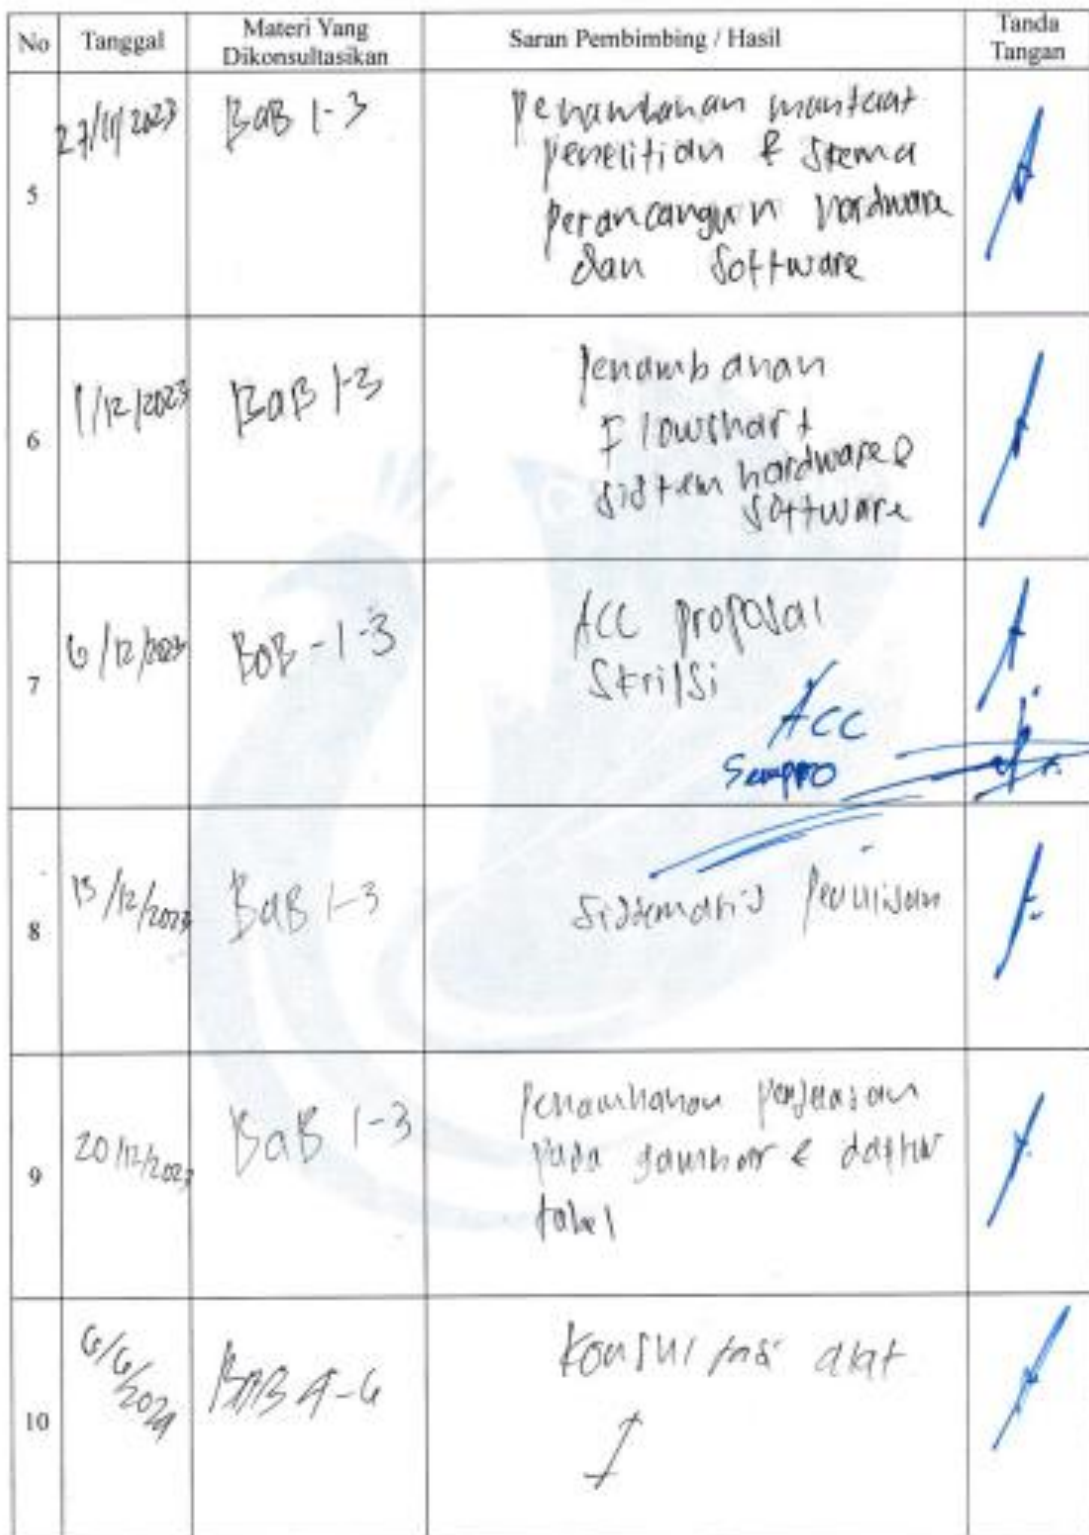 No Tanggal Materi Yang Dikonsultasikan Saran Pembimbing / Hasil Tanda Tangan
5 27/11/2023 BaB 1-3 Penambahan manfaat
penelitian & skema
perancangan hardware
dan software
6 1/12/2023 BaB 1-3 Penambahan
Flowshart
sistem hardware &
software
7 6/12/2023 BaB - 1-3 ACC proposal
Skripsi
ACC
Sempro
8 13/12/2023 BaB 1-3 Sistematis Penulisan
9 20/12/2023 BaB 1-3 Penambahan penjelasan
pada gambar & daftar
tabel
10 6/6/2024 BAB 4-6 Konsultasi alat